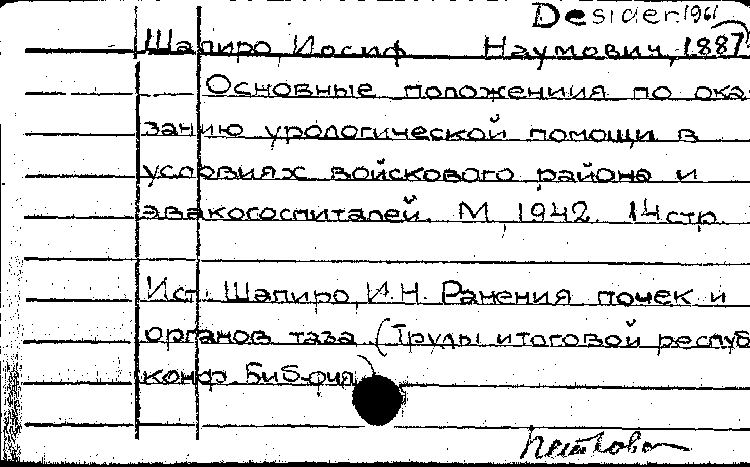 Desider. 1961
Шапиро, Иосиф Наумович, 1887
Основные положениия по ока-
занию урологической помощи в
условиях войскового района и
эвакогоспиталей. М, 1942. 14 стр.
Ист.: Шапиро, И.Н. Ранения почек и
органов таза (Труды итоговой респуб
конф. Библ-фия)